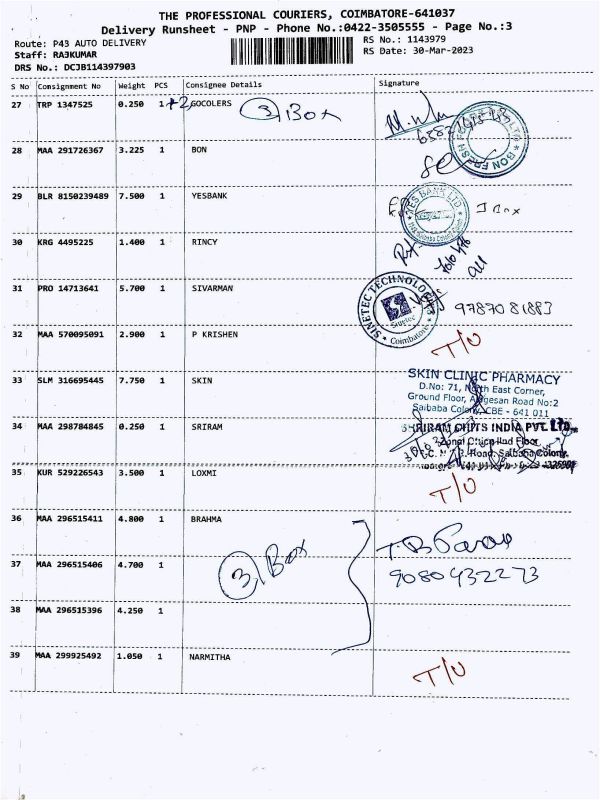 THE PROFESSIONAL COURIERS, COIMBATORE-641037
Delivery Runsheet - PNP - Phone No.:0422-3505555 - Page No.:3
Route: P43 AUTO DELIVERY
RS No.: 1143979
Staff: RAJKUMAR
RS Date: 30-Mar-2023
DRS No.: DCJB114397903
S No Consignment No Weight PCS Consignee Details Signature
27 TRP 1347525 0.250 1 +2 GOCOLERS 3 Box
BON FRESH
28 MAA 291726367 3.225 1 BON
29 BLR 8150239489 7.500 1 YESBANK YES BANK LTD Box
30 KRG 4495225 1.400 1 RINCY
31 PRO 14713641 5.700 1 SIVARMAN SINETEC TECHNOLOGIES Sinetec Coimbatore 9787081883
32 MAA 570095091 2.900 1 P KRISHEN T/O
33 SLM 316695445 7.750 1 SKIN
SKIN CLINIC PHARMACY
D.No: 71, North East Corner,
Ground Floor, Road No:2
Saibaba Colony, CBE - 641 011
34 MAA 298784845 0.250 1 SRIRAM
SHRIRAM CHITS INDIA PVT. LTD.,
Floor
Road, Saibaba Colony,
35 KUR 529226543 3.500 1 LOXMI T/O
36 MAA 296515411 4.800 1 BRAHMA
37 MAA 296515406 4.700 1 3 Box 9080432273
38 MAA 296515396 4.250 1
39 MAA 299925492 1.050 1 NARMITHA T/O